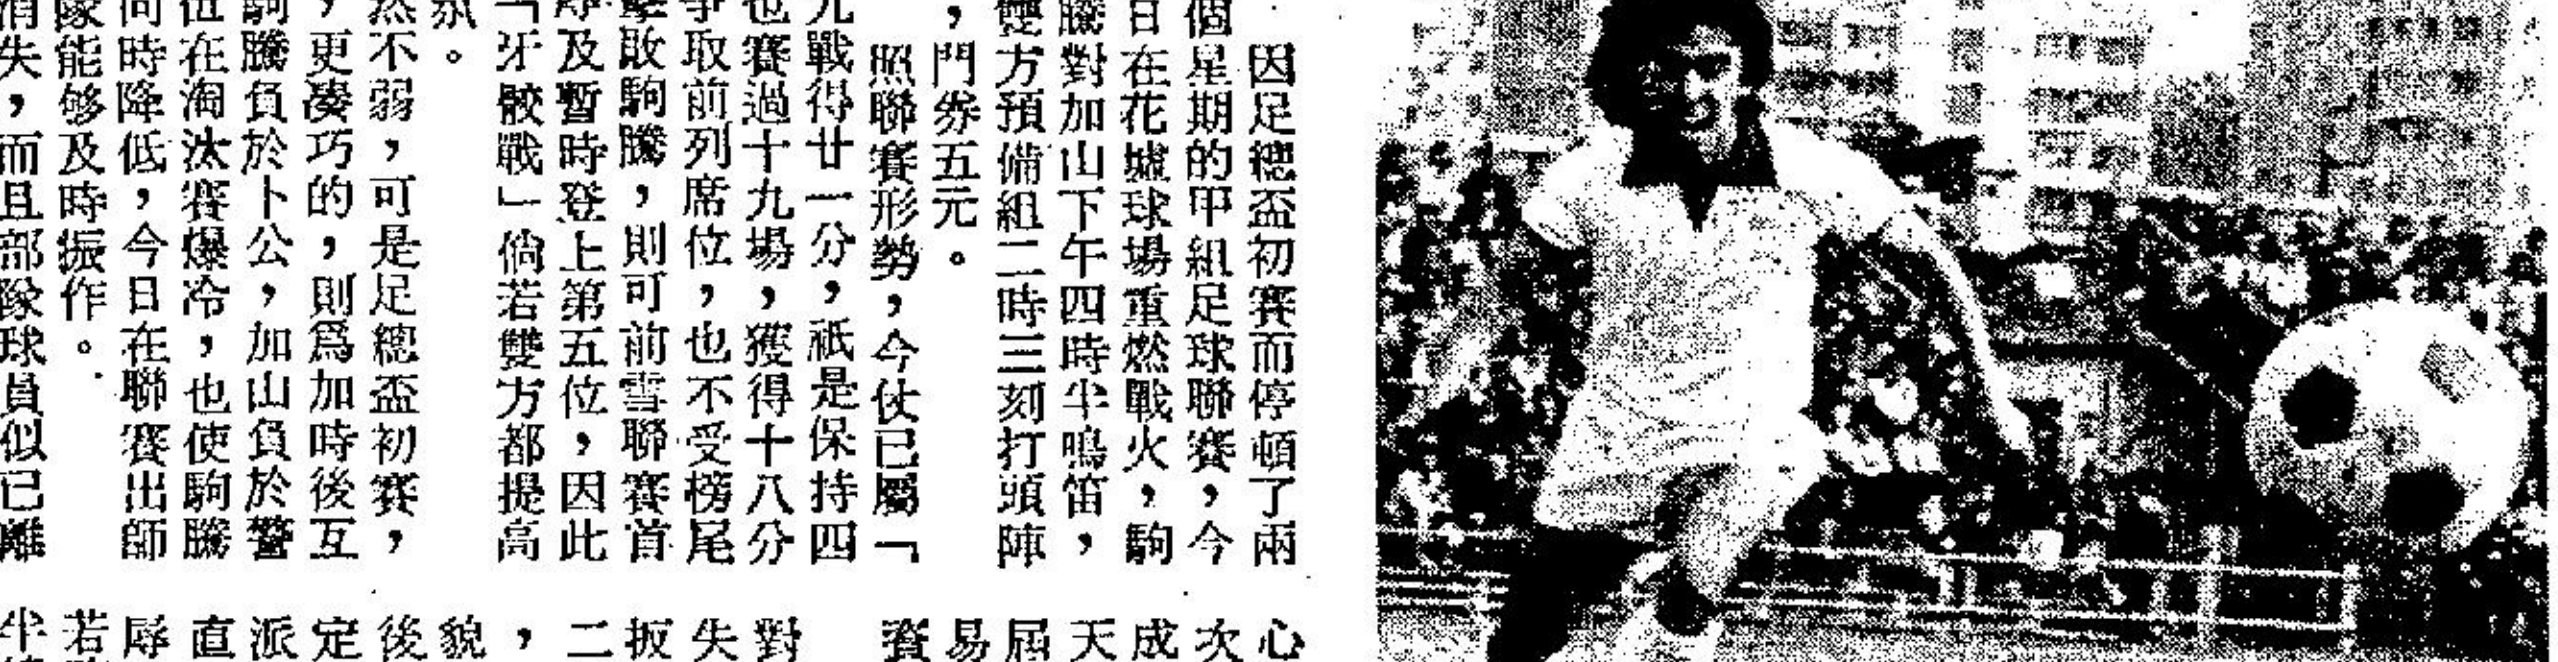 因足總盃初賽而停頓了兩
個星期的甲組足球聯賽，今
日在花墟球場重燃戰火，駒
騰對加山下午四時半鳴笛，
雙方預備組二時三刻打頭陣
，門券五元。
照聯賽形勢，今仗已屬「
九戰得廿一分，祇是保持四
也賽過十九場，獲得十八分
爭取前列席位，也不受榜尾
擊敗駒騰，則可前雪聯賽首
即及暫時登上第五位，因此
「牙骹戰」倘若雙方都提高
氛。
然不弱，可是足總盃初賽，
，更湊巧的，則爲加時後互
駒騰負於卜公，加山負於警
伍在淘汰賽爆冷，也使駒騰
同時降低，今日在聯賽出師
隊能够及時振作。
消失，而且部隊球員似已離
心
次
成
天
屆
易
賽
對
失
扳
二
，
貌
後
定
派
直
辱
若
半